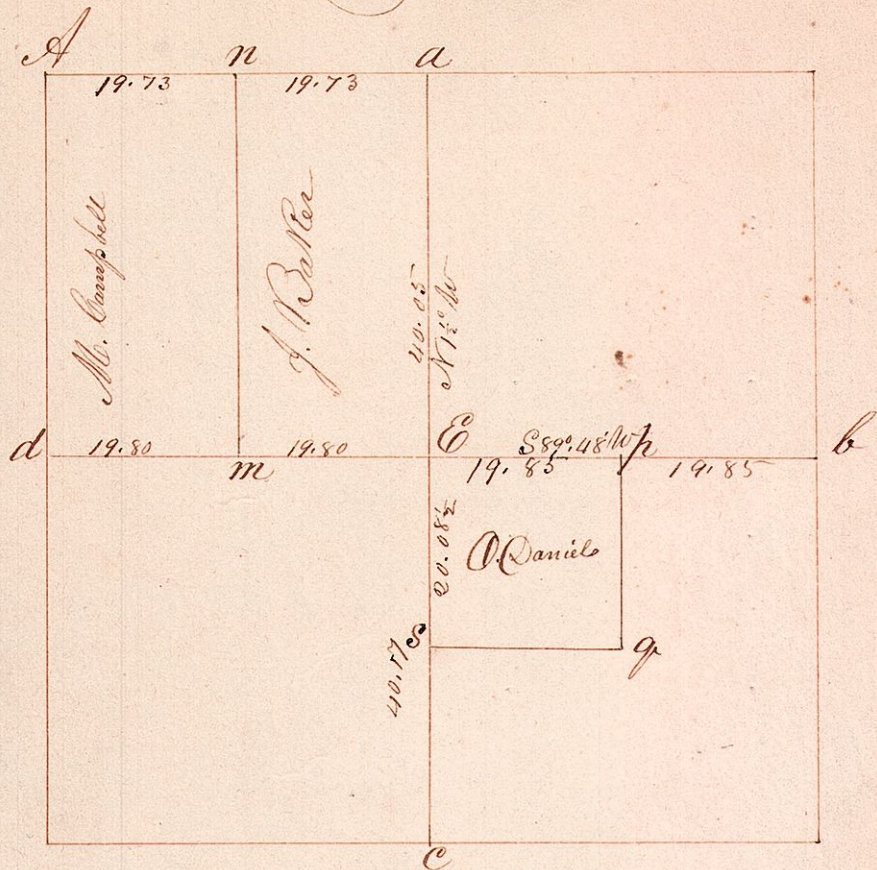 A n a
19.73 19.73
M. Campbell
J. Baker
40.05
N 1½° W
d 19.80 m 19.80 E S 89°.48' W p b
19.85 19.85
20.08½
O. Daniels
S q
40.17
c